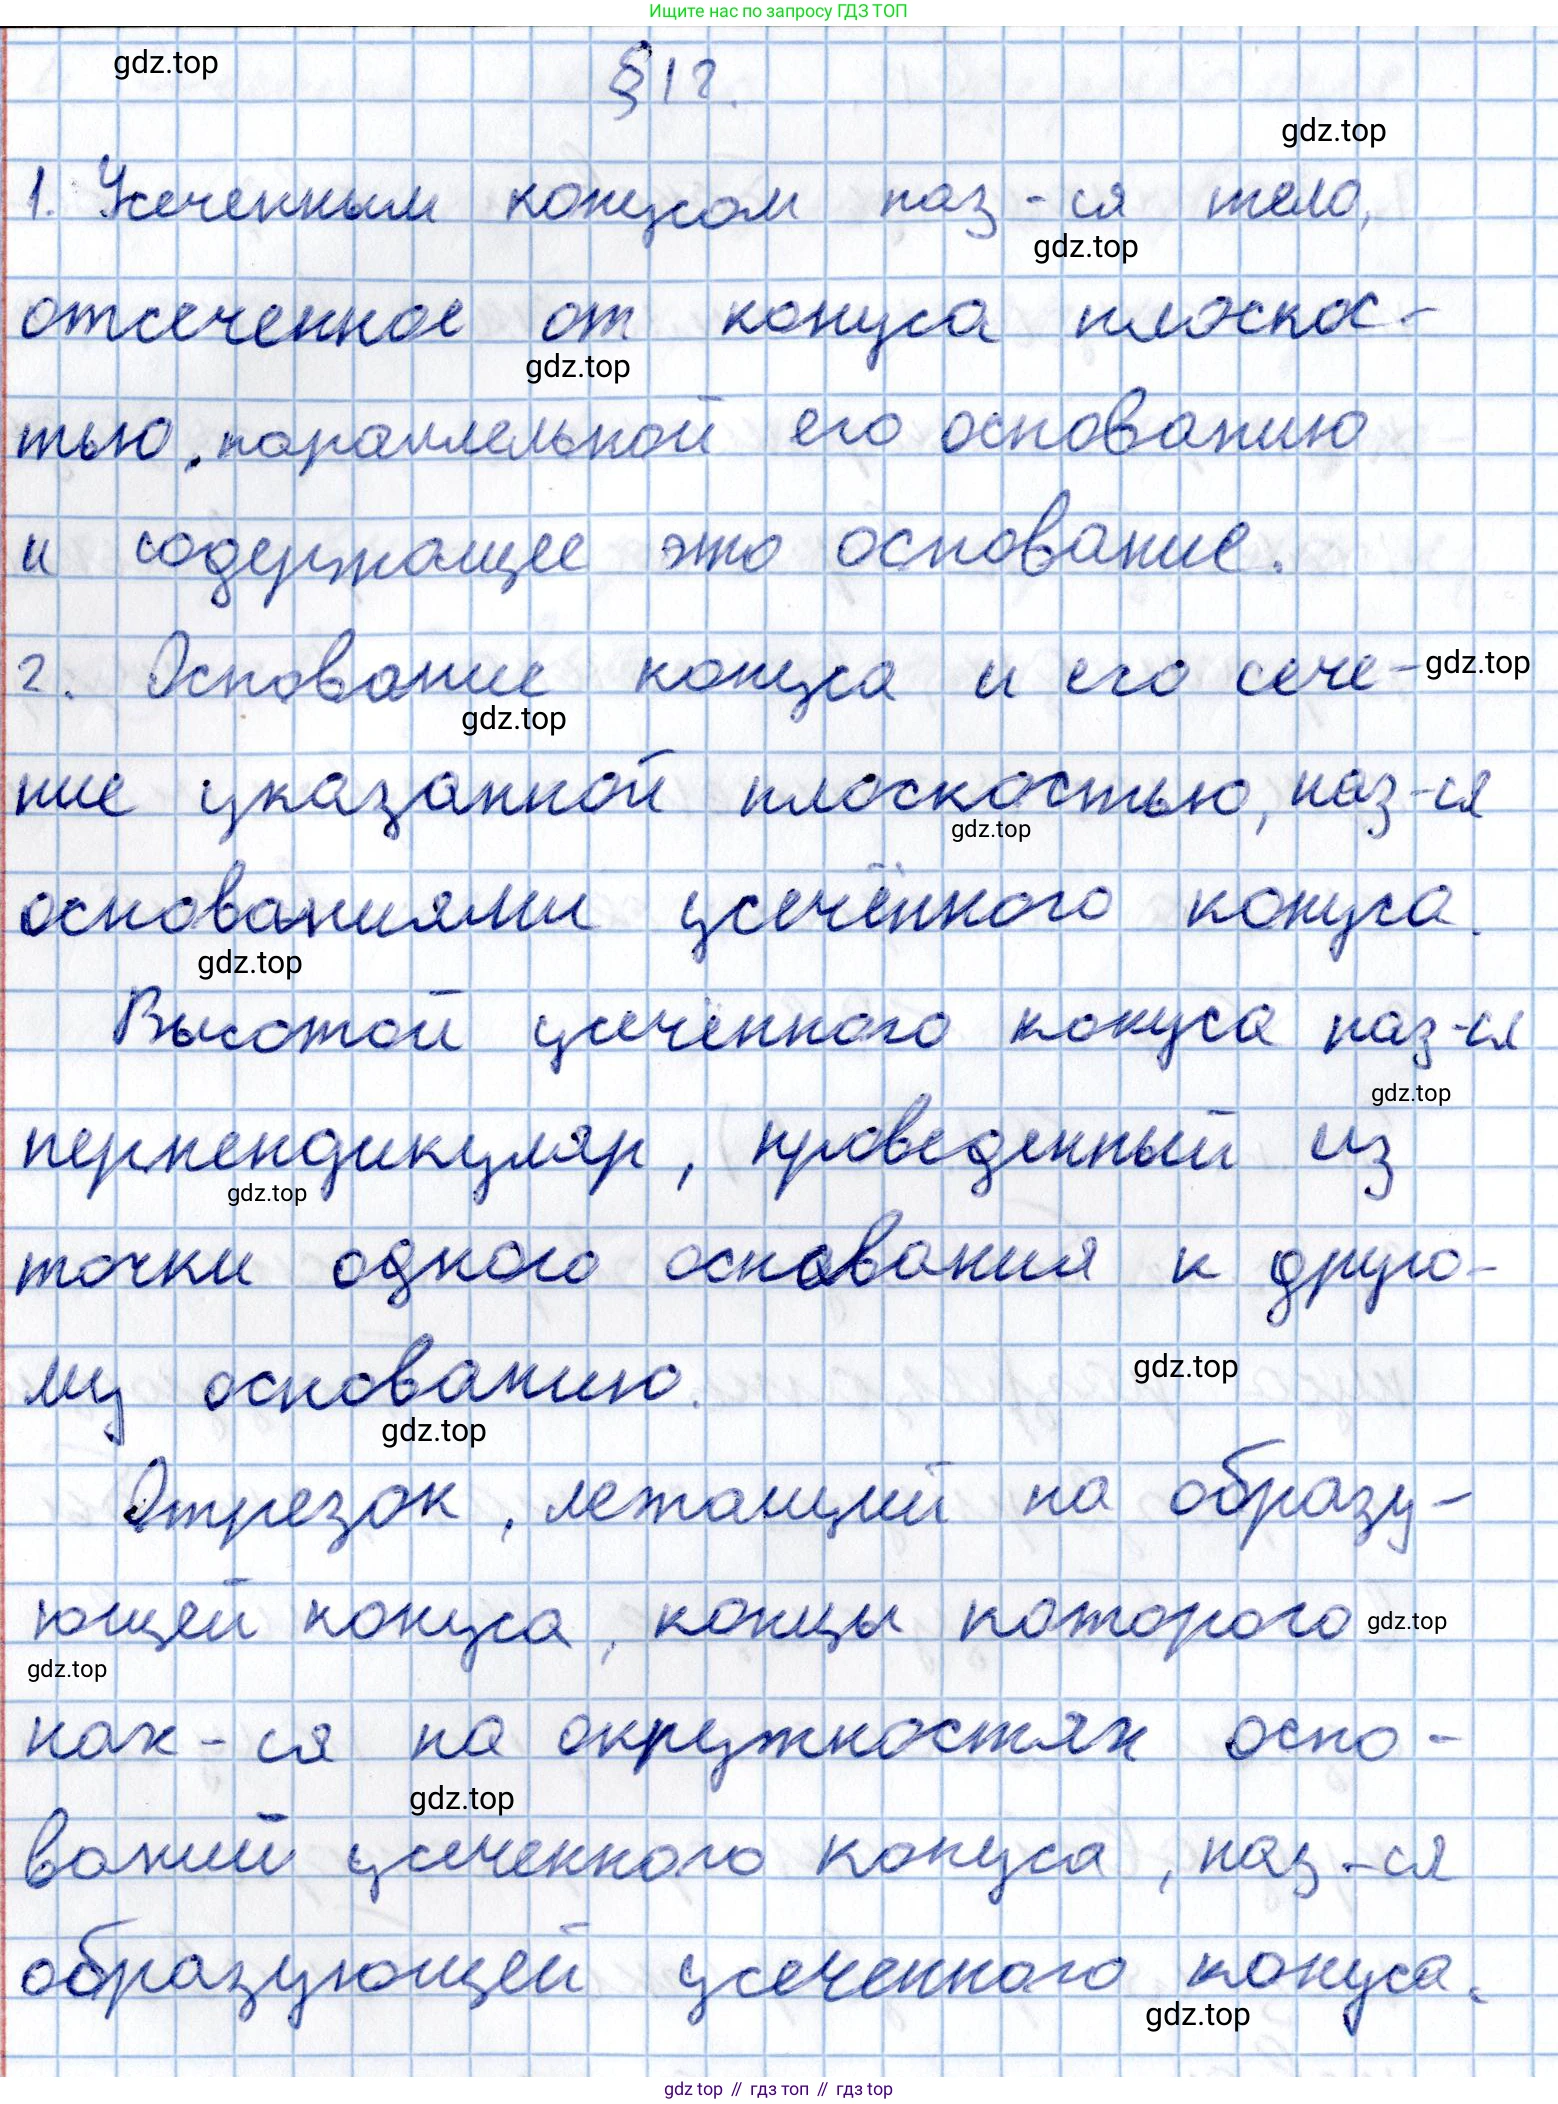 Ищите нас по запросу ГДЗ ТОП
gdz.top
§12.
gdz.top
1. Усеченным конусом наз-ся тело,
gdz.top
отсеченное от конуса плоскос-
gdz.top
тью, параллельной его основанию
и содержащее это основание.
2. Основание конуса и его сече-
gdz.top
gdz.top
ние указанной плоскостью, наз-ся
gdz.top
основаниями усечённого конуса.
gdz.top
Высотой усечённого конуса наз-ся
gdz.top
перпендикуляр, проведенный из
gdz.top
точки одного основания к друго-
му основанию.
gdz.top
gdz.top
Отрезок, лежащий на образу-
ющей конуса, концы которого
gdz.top
gdz.top
нах-ся на окружностях осно-
gdz.top
ваний усеченного конуса, наз-ся
образующей усеченного конуса.
gdz.top
gdz top // гдз топ // гдз top